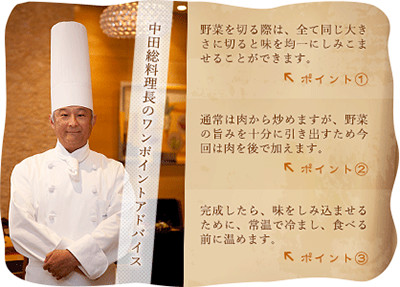 中田総料理長のワンポイントアドバイス
野菜を切る際は、全て同じ大き
さに切ると味を均一にしみこま
せることができます。
ポイント①
通常は肉から炒めますが、野菜
の旨みを十分に引き出すため今
回は肉を後で加えます。
ポイント②
完成したら、味をしみ込ませる
ために、常温で冷まし、食べる
前に温めます。
ポイント③